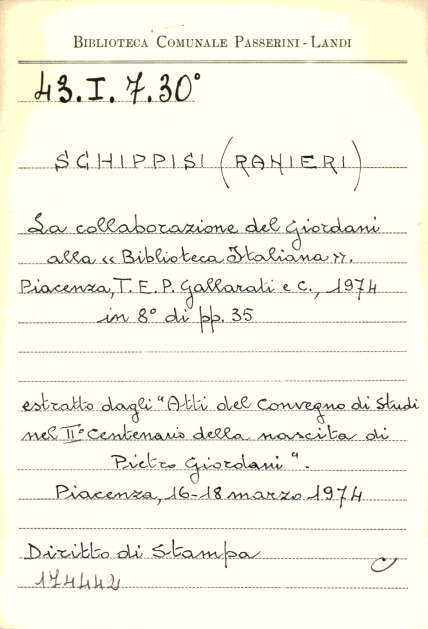 BIBLIOTECA COMUNALE PASSERINI - LANDI
43.I.7.30°
SCHIPPISI (RANIERI)
La collaborazione del Giordani
alla « Biblioteca Italiana ».
Piacenza, T.E.P. Gallarati e C., 1974
in 8° di pp. 35
estratto dagli "Atti del Convegno di Studi
nel II° Centenario della nascita di
Pietro Giordani".
Piacenza, 16-18 marzo 1974
Diritto di Stampa
174442